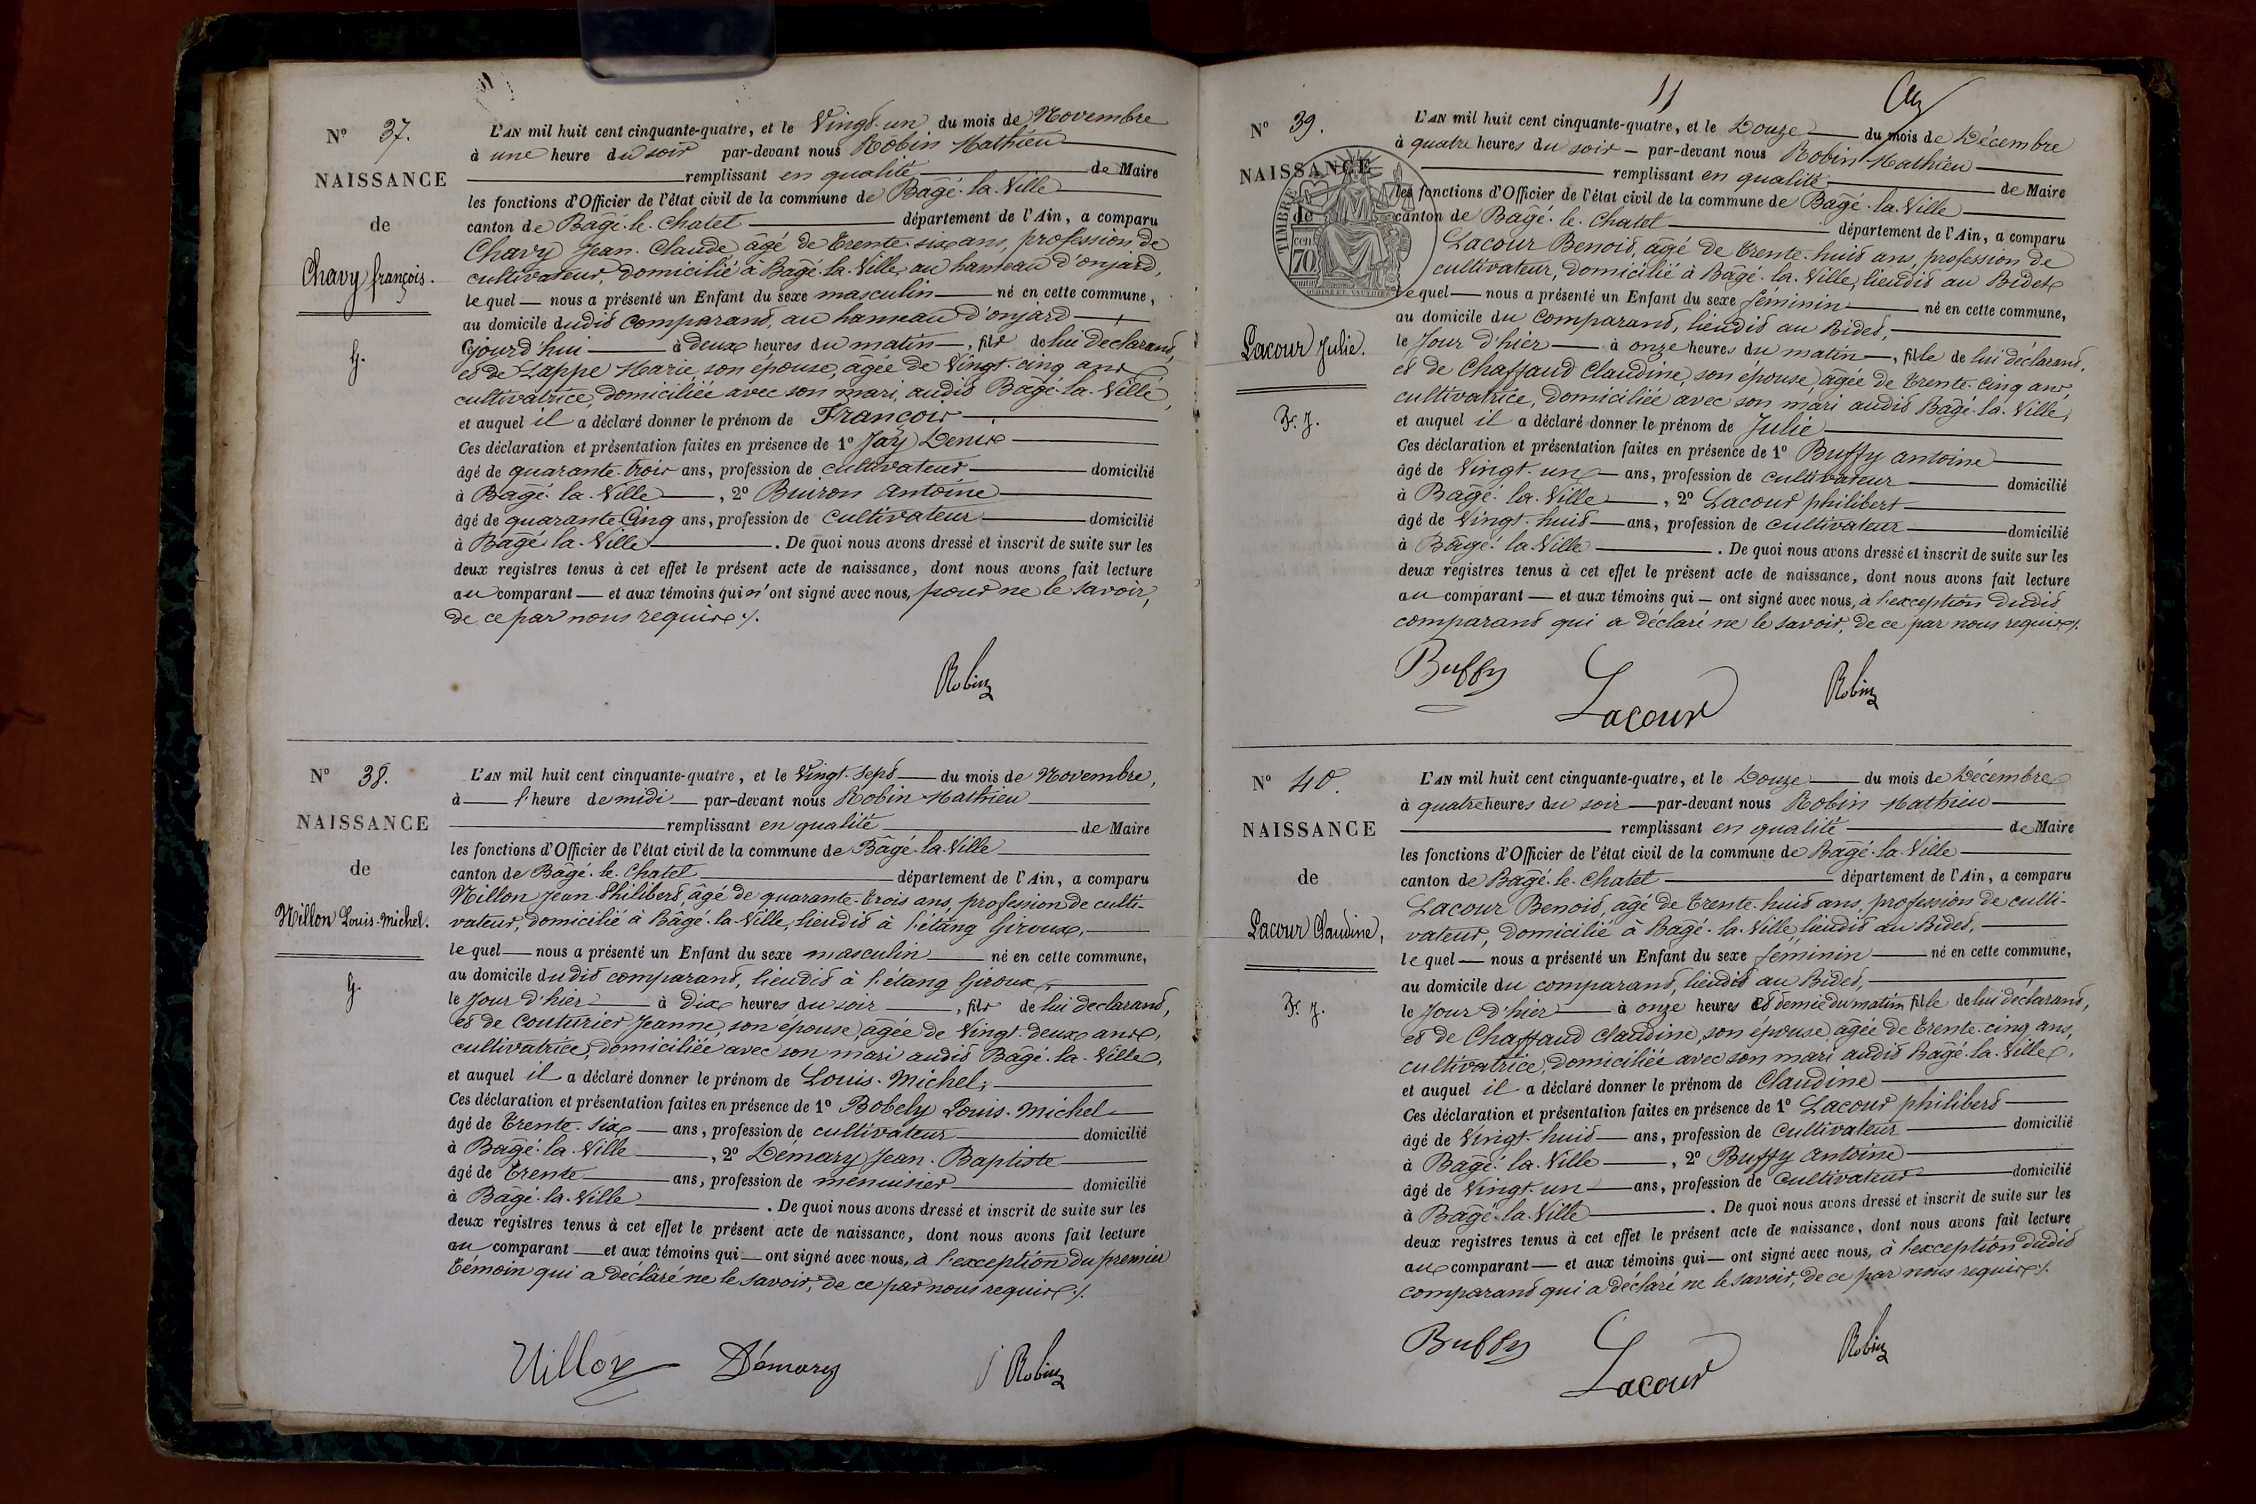 N° 37.
NAISSANCE
de
Chavy françois.
G.
L'AN mil huit cent cinquante-quatre, et le Vingt-un du mois de Novembre
à une heure du soir par-devant nous Robin Mathieu
remplissant en qualité de Maire
les fonctions d'Officier de l'état civil de la commune de Bâgé-la-Ville
canton de Bâgé-le-Chatel département de l'Ain, a comparu
Chavy Jean-Claude âgé de trente-six ans, profession de
cultivateur, domicilié à Bâgé-la-Ville, au hameau d'onjard,
lequel nous a présenté un Enfant du sexe masculin né en cette commune,
au domicile dudit comparant, au hameau d'onjard
jourd'hui à deux heures du matin, fils de lui déclarant,
et de Lappe Marie, son épouse, âgée de Vingt-cinq ans
cultivatrice, domiciliée avec son mari, audit Bâgé-la-Ville,
et auquel il a déclaré donner le prénom de François
Ces déclaration et présentation faites en présence de 1° Jay Denis
âgé de quarante-trois ans, profession de cultivateur domicilié
à Bâgé-la-Ville, 2° Buiron Antoine
âgé de quarante-Cinq ans, profession de cultivateur domicilié
à Bâgé-la-Ville. De quoi nous avons dressé et inscrit de suite sur les
deux registres tenus à cet effet le présent acte de naissance, dont nous avons fait lecture
au comparant et aux témoins qui n'ont signé avec nous, pour ne le savoir,
de ce par nous requis ./.
Robin
N° 38.
NAISSANCE
de
Nillon Louis-Michel.
G.
L'AN mil huit cent cinquante-quatre, et le Vingt-sept du mois de Novembre,
à l'heure de midi par-devant nous Robin Mathieu
remplissant en qualité de Maire
les fonctions d'Officier de l'état civil de la commune de Bâgé-la-Ville
canton de Bâgé-le-Chatel département de l'Ain, a comparu
Nillon Jean-Philibert, âgé de quarante-trois ans, profession de culti-
vateur, domicilié à Bâgé-la-Ville, lieudit à l'étang Giroux,
lequel nous a présenté un Enfant du sexe masculin né en cette commune,
au domicile dudit comparant, lieudit à l'étang Giroux,
le jour d'hier à dix heures du soir, fils de lui déclarant,
et de Couturier Jeanne, son épouse, âgée de Vingt-deux ans,
cultivatrice, domiciliée avec son mari audit Bâgé-la-Ville,
et auquel il a déclaré donner le prénom de Louis-Michel;
Ces déclaration et présentation faites en présence de 1° Bobely Louis-Michel
âgé de trente-six ans, profession de cultivateur domicilié
à Bâgé-la-Ville, 2° Démary Jean-Baptiste
âgé de trente ans, profession de menuisier domicilié
à Bâgé-la-Ville. De quoi nous avons dressé et inscrit de suite sur les
deux registres tenus à cet effet le présent acte de naissance, dont nous avons fait lecture
au comparant et aux témoins qui ont signé avec nous, à l'exception du premier
témoin qui a déclaré ne le savoir, de ce par nous requis ./.
Nillon Démary Robin
11
N° 39.
NAISSANCE
de
TIMBRE
cen
70
Lacour Julie.
F. J.
L'AN mil huit cent cinquante-quatre, et le Douze du mois de Décembre
à quatre heures du soir par-devant nous Robin Mathieu
remplissant en qualité de Maire
les fonctions d'Officier de l'état civil de la commune de Bâgé-la-Ville
canton de Bâgé-le-Chatel département de l'Ain, a comparu
Lacour Benoit, âgé de trente-huit ans, profession de
cultivateur, domicilié à Bâgé-la-Ville, lieudit au Bidet
lequel nous a présenté un Enfant du sexe féminin né en cette commune,
au domicile du comparant, lieudit au Bidet,
le jour d'hier à onze heures du matin, fille de lui déclarant,
et de Chaffaud Claudine, son épouse, âgée de trente-cinq ans,
cultivatrice, domiciliée avec son mari audit Bâgé-la-Ville,
et auquel il a déclaré donner le prénom de Julie
Ces déclaration et présentation faites en présence de 1° Buffy Antoine
âgé de Vingt-un ans, profession de cultivateur domicilié
à Bâgé-la-Ville, 2° Lacour philibert
âgé de Vingt-huit ans, profession de cultivateur domicilié
à Bâgé-la-Ville. De quoi nous avons dressé et inscrit de suite sur les
deux registres tenus à cet effet le présent acte de naissance, dont nous avons fait lecture
au comparant et aux témoins qui ont signé avec nous, à l'exception dudit
comparant qui a déclaré ne le savoir, de ce par nous requis ./.
Buffy Lacour Robin
N° 40.
NAISSANCE
de
Lacour Claudine,
F. J.
L'AN mil huit cent cinquante-quatre, et le Douze du mois de Décembre
à quatre heures du soir par-devant nous Robin Mathieu
remplissant en qualité de Maire
les fonctions d'Officier de l'état civil de la commune de Bâgé-la-Ville
canton de Bâgé-le-Chatel département de l'Ain, a comparu
Lacour Benoit, âgé de trente-huit ans, profession de culti-
vateur, domicilié à Bâgé-la-Ville lieudit au Bidet,
lequel nous a présenté un Enfant du sexe féminin né en cette commune,
au domicile du comparant, lieudit au Bidet,
le jour d'hier à onze heures et demie du matin fille de lui déclarant,
et de Chaffaud Claudine, son épouse âgée de trente-cinq ans,
cultivatrice, domiciliée avec son mari audit Bâgé-la-Ville,
et auquel il a déclaré donner le prénom de Claudine
Ces déclaration et présentation faites en présence de 1° Lacour philibert
âgé de Vingt-huit ans, profession de cultivateur domicilié
à Bâgé-la-Ville, 2° Buffy Antoine
âgé de Vingt-un ans, profession de cultivateur domicilié
à Bâgé-la-Ville. De quoi nous avons dressé et inscrit de suite sur les
deux registres tenus à cet effet le présent acte de naissance, dont nous avons fait lecture
au comparant et aux témoins qui ont signé avec nous, à l'exception dudit
comparant qui a déclaré ne le savoir, de ce par nous requis ./.
Buffy Lacour Robin